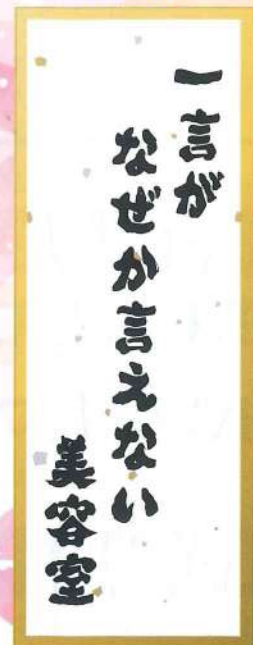 一言が
なぜか言えない
美容室